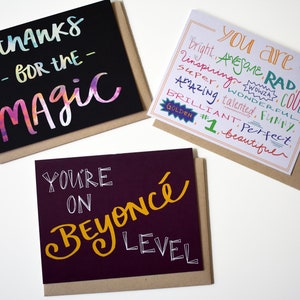 THANKS
- FOR THE -
MAGIC
you are
Bright Awesome RAD
Inspiring
Super
AMAZING WONDERFUL
BRILLIANT Talented Funny
GOLDEN #1 Perfect
beautiful
YOU'RE
ON
BEYONCÉ
LEVEL